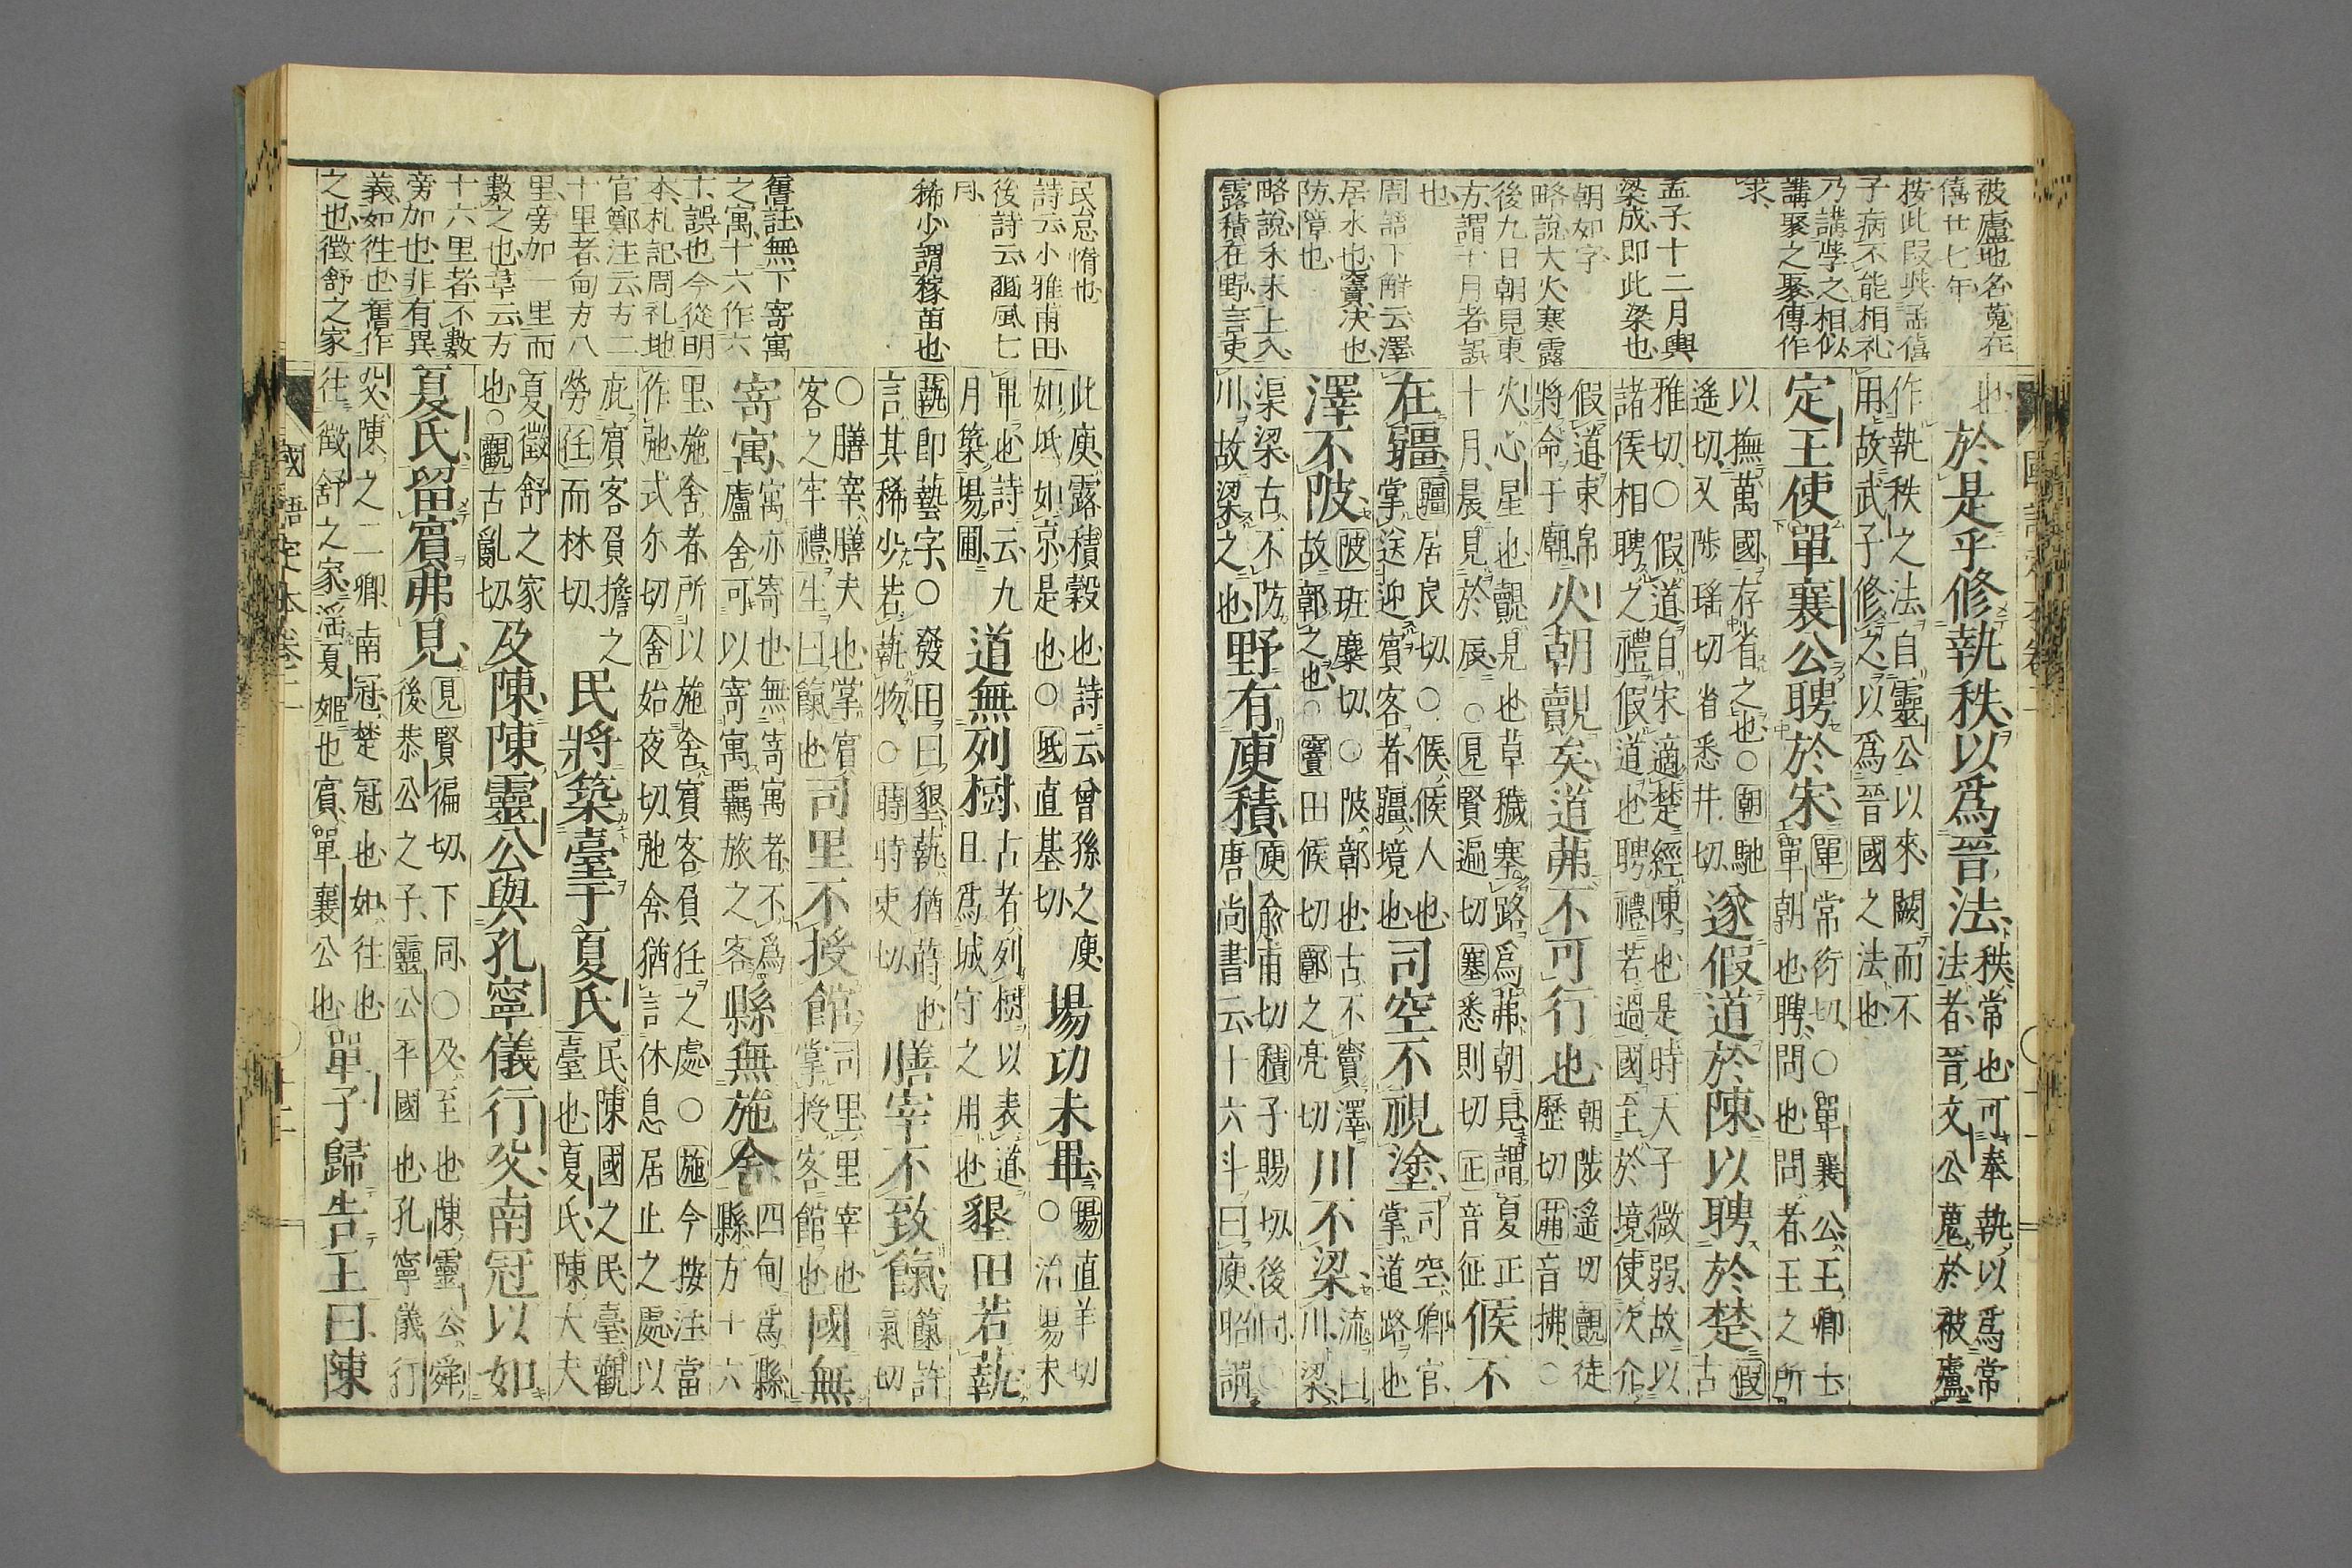 被廬地名蒐在
僖廿七年
按此叚與孟僖
子病不能相礼
乃講學之相似
講聚之聚傳作
求
孟子十二月輿
梁成即此梁也
朝如字
略說大火寒露
後九日朝見東
方謂十月者誤
也
周語下解云澤
居水也竇決也
防障也
略說禾未上入
露積在野言吏
也於是乎修執秩以爲晉法秩常也可奉執以爲常法者晉文公蒐於被廬
作執秩之法自靈公以來闕而不用故武子修之以爲晉國之法也
定王使單襄公聘於宋單常衍切○單襄公王卿士單朝也聘問也問者王之所
以撫萬國存省之也○朝馳遙切又陟瑤切省悉井切遂假道於陳以聘於楚假古
雅切○假道自宋適楚經陳也是時天子微弱故以諸侯相聘之禮假道也聘禮若過國至於境使次介
假道束帛將命于朝火朝覿矣道茀不可行也朝陟遙切覿徒歷切茀音拂○
火心星也覿見也草穢塞路爲茀朝見謂夏正十月晨見於辰○見賢遍切塞悉則切正音征候不
在疆疆居良切○候候人也掌送迎賓客者疆境也司空不視塗司空卿官掌道路也
澤不陂陂班麋切○陂鄣也古不竇澤故鄣之也○竇田候切鄣之亮切川不梁流曰川梁
渠梁古不防川故梁之也野有庾積庾俞甫切積子賜切後同○唐尚書云十六斗曰庾昭謂
民怠惰也
詩云小雅甫田
後詩云豳風七
月
稀小謂稼苗也
舊註無下寄寓
之寓十六作六
十誤也今從明
本札記周礼地
官鄭注云方二
十里者甸方八
里旁加一里而
數之也韋云方
十六里者不數
旁加也非有異
義如往也舊作
之也徵舒之家
此庾露積穀也詩云曾孫之庾如坻如京是也○坻直基切場功未畢場直羊切○治場未
畢也詩云九月築場圃道無列樹古者列樹以表道且爲城守之用也墾田若蓺
蓺即藝字○發田曰墾蓺猶蒔也言其稀少若蓺物○蒔時吏切膳宰不致餼餼許氣切
○膳宰膳夫也掌賓客之牢禮生曰餼也司里不授館司里里宰也掌授客館也國無
寄寓寓亦寄也無寄寓者不爲廬舍可以寄寓羇旅之客縣無施舍四甸爲縣縣方十六
里施舍者所以施舍賓客負任之處○施今按注當作弛式尔切舍始夜切弛舍猶言休息居止之處以
庇賓客負擔之勞任而林切民將築臺于夏氏民陳國之民臺觀臺也夏氏陳大夫
夏徵舒之家也○觀古亂切及陳陳靈公與孔寧儀行父南冠以如
夏氏留賓弗見見賢徧切下同○及至也陳靈公舜後恭公之子靈公平國也孔寧儀行
父陳之二卿南冠楚冠也如往也往徵舒之家淫夏姬也賓單襄公也單子歸告王曰陳
國語定本卷二